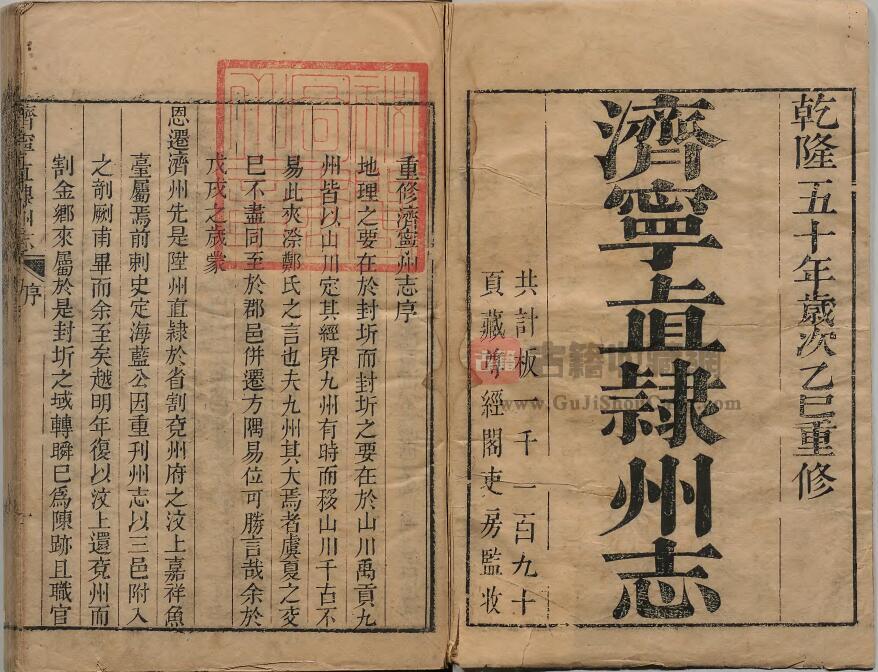 乾隆五十年歲次乙巳重修
濟寧直隸州志
共計板一千一百九十
頁藏尊經閣吏房監收
重修濟寧州志序
地理之要在於封圻而封圻之要在於山川禹貢九
州皆以山川定其經界九州有時而移山川千古不
易此夾漈鄭氏之言也夫九州其大焉者虞夏之交
巳不盡同至於郡邑併遷方隅易位可勝言哉余於
戊戌之歲蒙
恩遷濟州先是陞州直隸於省割兗州府之汶上嘉祥魚
臺屬焉前刺史定海藍公因重刊州志以三邑附入
之剞劂甫畢而余至矣越明年復以汶上還兗州而
割金鄉來屬於是封圻之域轉瞬巳爲陳跡且職官
濟寧直隸州志
序
一
古籍
古籍收藏網
www.GuJiShouCang.com